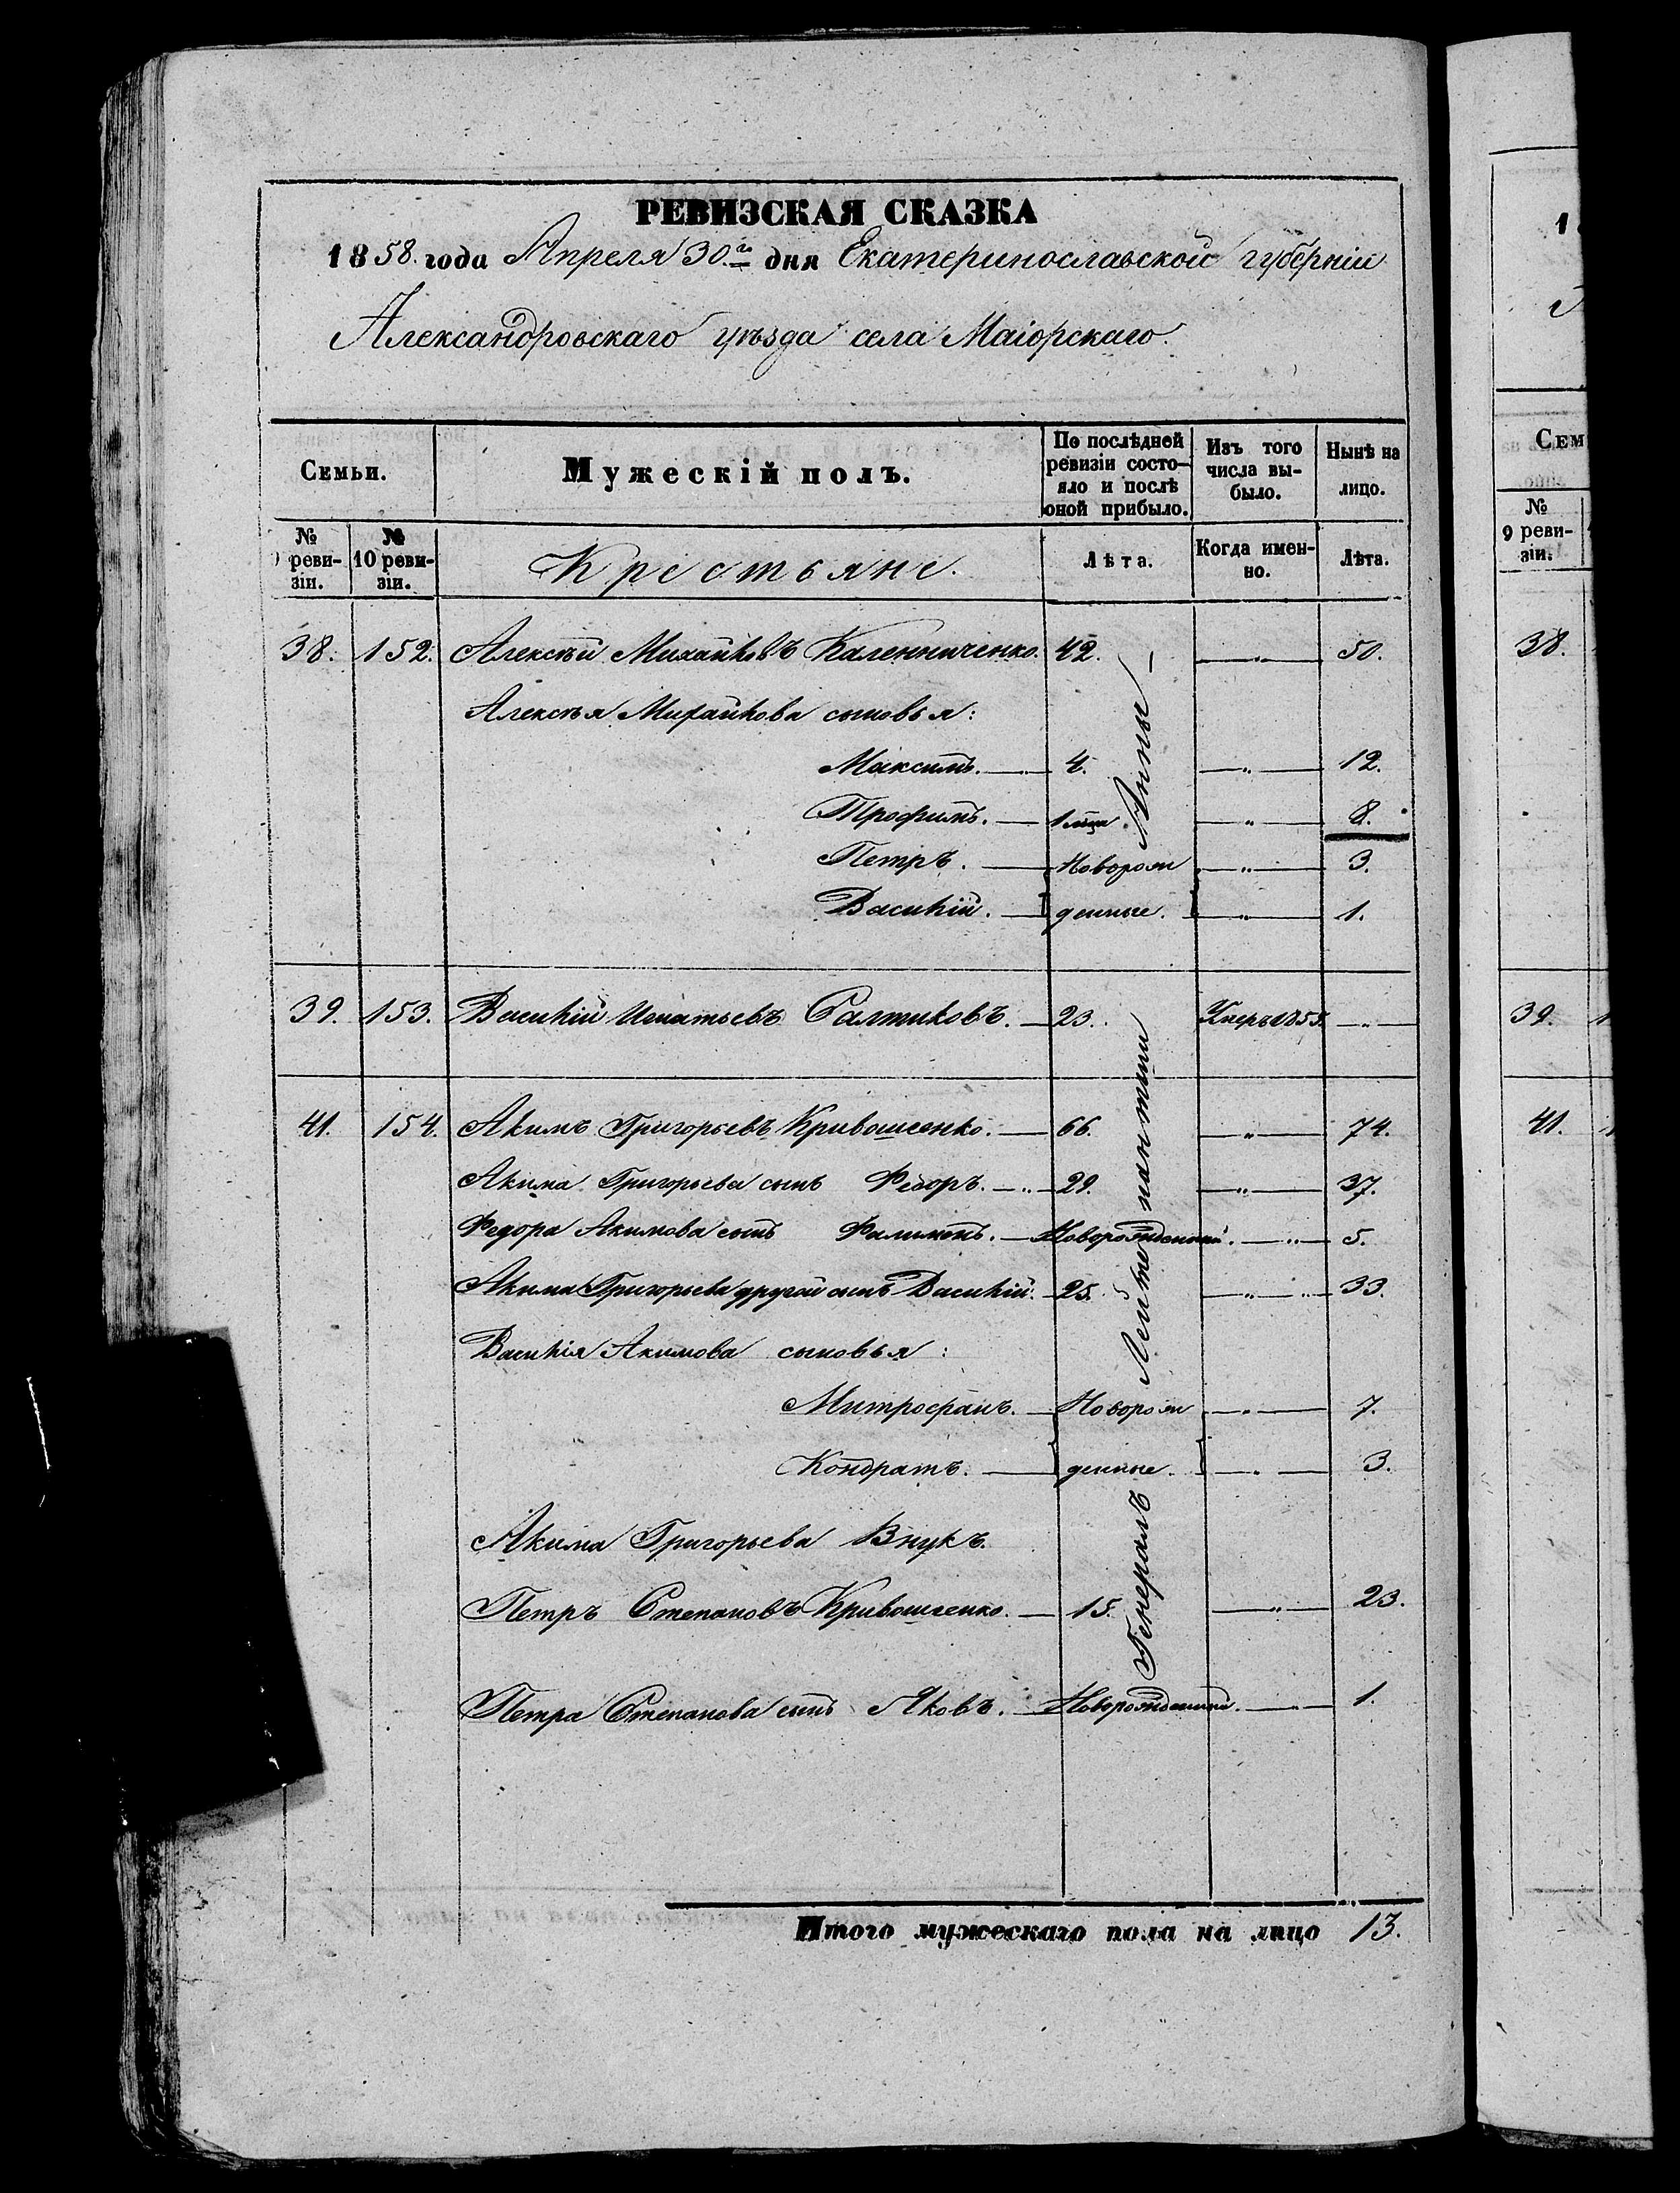 РЕВИЗСКАЯ СКАЗКА
1858. года Апреля 30.го дня Екатеринославской губерніи
Александровскаго уѣзда села Маіорскаго.
Семьи.
Мужескій полъ.
По послѣдней ревизіи состо-
яло и послѣ
оной прибыло.
Изъ того
числа вы-
было.
Нынѣ на
лицо.
№
9 реви-
зіи.
№
10 реви-
зіи.
Крестьяне.
Лѣта.
Когда имен-
но.
Лѣта.
38. 152. Алексѣй Михайловъ Каленниченко. 42. —„— 50.
Алексѣя Михайлова сыновья:
Максимъ. — 4. —„— 12.
Трофимъ. — 1 мѣца. —„— 8.
Петръ. — Новорож —„— 3.
Василій. — денные. —„— 1.
39. 153. Василій Игнатьевъ Салтиковъ. — 23. Умеръ 1855. —„—
41. 154. Акимъ Григорьевъ Кривошеенко. — 66. —„— 74.
Акима Григорьева сынъ Федоръ. —„— 29. —„— 37.
Федора Акимова сынъ Филимонъ. — Новорожденный. —„— 5.
Акима Григорьева другой сынъ Василій. — 25. —„— 33.
Василія Акимова сыновья:
Митрофанъ. — Новорож —„— 7.
Кондратъ. — денные. —„— 3.
Акима Григорьева Внукъ.
Петръ Степановъ Кривошеенко. — 15. —„— 23.
Петра Степанова сынъ Яковъ. — Новорожденный. —„— 1.
Генералъ Лейтенантши Анны —
Итого мужескаго пола на лицо 13.
1
Сем
№
9 реви-
зіи.
38.
39.
41.